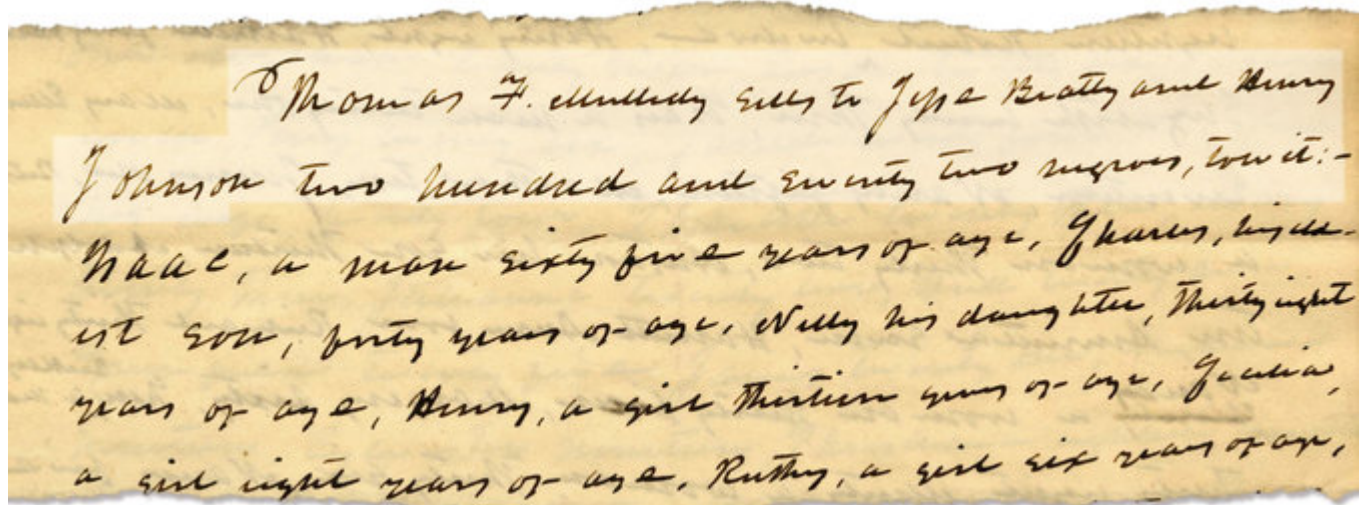 Thomas F. Mulledy sells to Jesse Beatty and Henry
Johnson two hundred and seventy two negroes, to wit:-
Isaac, a man sixty five years of age, Charles, his eld-
est son, forty years of age, Nelly his daughter, thirty eight
years of age, Henny, a girl thirteen years of age, Cecilia,
a girl eight years of age, Ruthy, a girl six years of age,